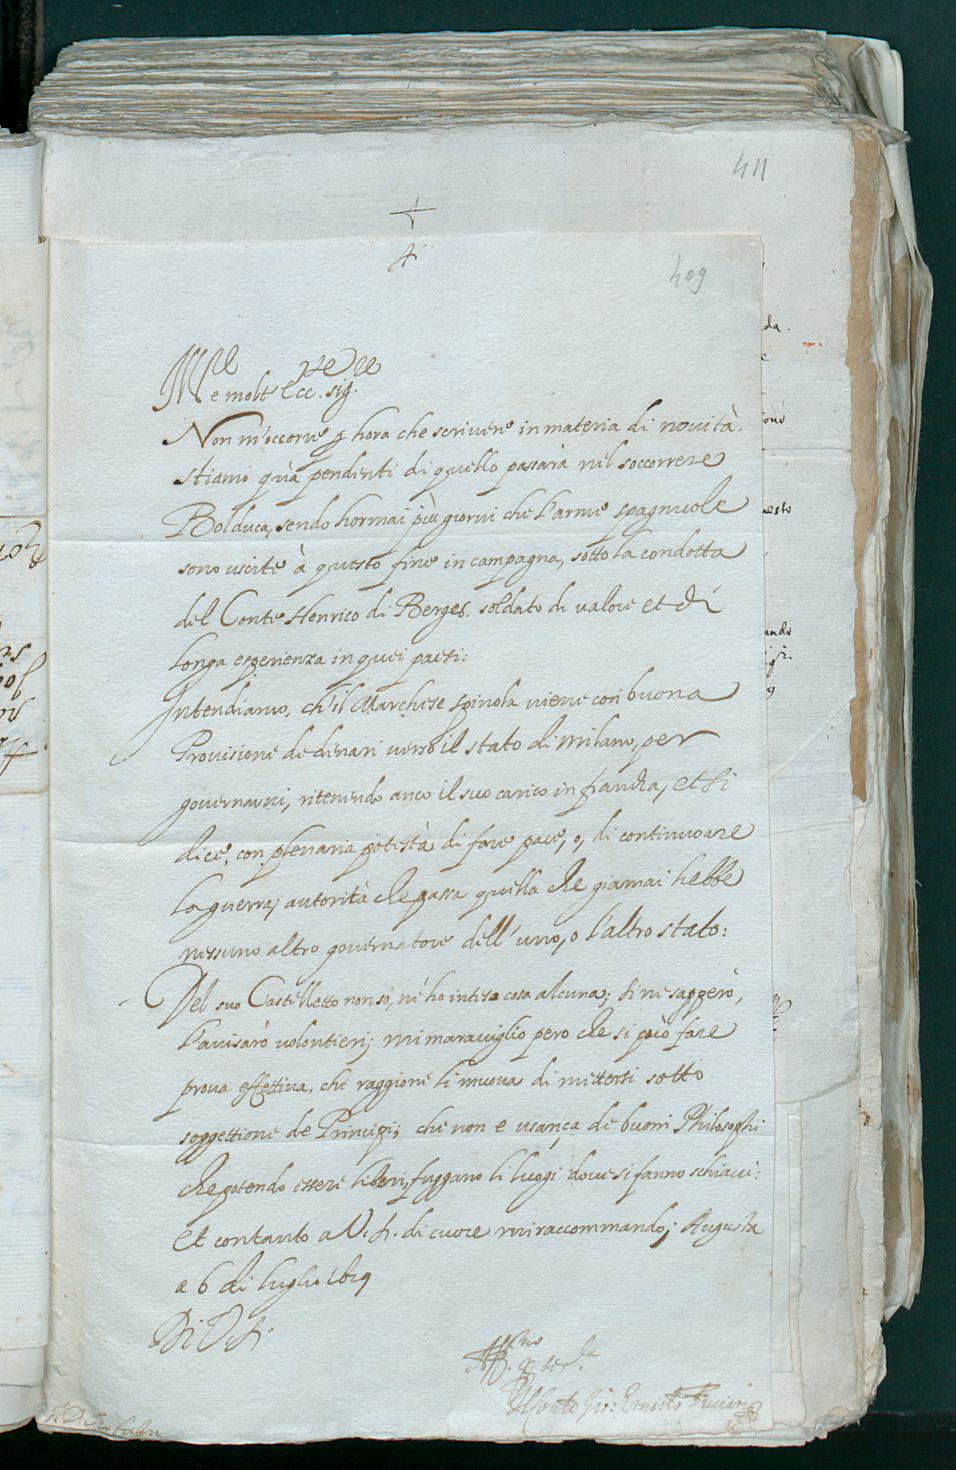 411
409
e molt Ecc. sig.re
Non m'occorre p hora che scrivere in materia di novità.
stiamo quà pendenti di quello passarà nel soccorrere
Bolduca, sendo hormai più giorni che l'arme spagnuole
sono uscite à questo fine in campagna, sotto la condotta
del Conte Henrico di Berges. soldato di valore et di
longa esperienza in quei paesi:
Intendiamo, ch'il Marchese spinola viene con buona
Provisione de denari verso il stato di Milano, per
governarvi, ritenendo anco il suo carico in fiandra, et si
dice, con plenaria potestà di fare pace, o, di continuare
la guerra; autorità che passa quella che giamai hebbe
nessuno altro governatore dell'uno, o l'altro stato:
Del suo Castelletto non só, né ho intesa cosa alcuna; si ne saperò,
l'avisarò volontieri; mi maraviglio pero che si può fare
prova effettiva, che raggione li muova di mettersi sotto
soggettione de Principi; che non e usança de buoni Philosophi
che potendo essere liberi, fuggano li luogi dove si fanno schiavi:
Et contanto a V. S. di cuore mi raccommando; Augusta
a 6 di luglio 1629
Di V. S.
Aff.mo p ser.la
Conte Gio: Ernesto